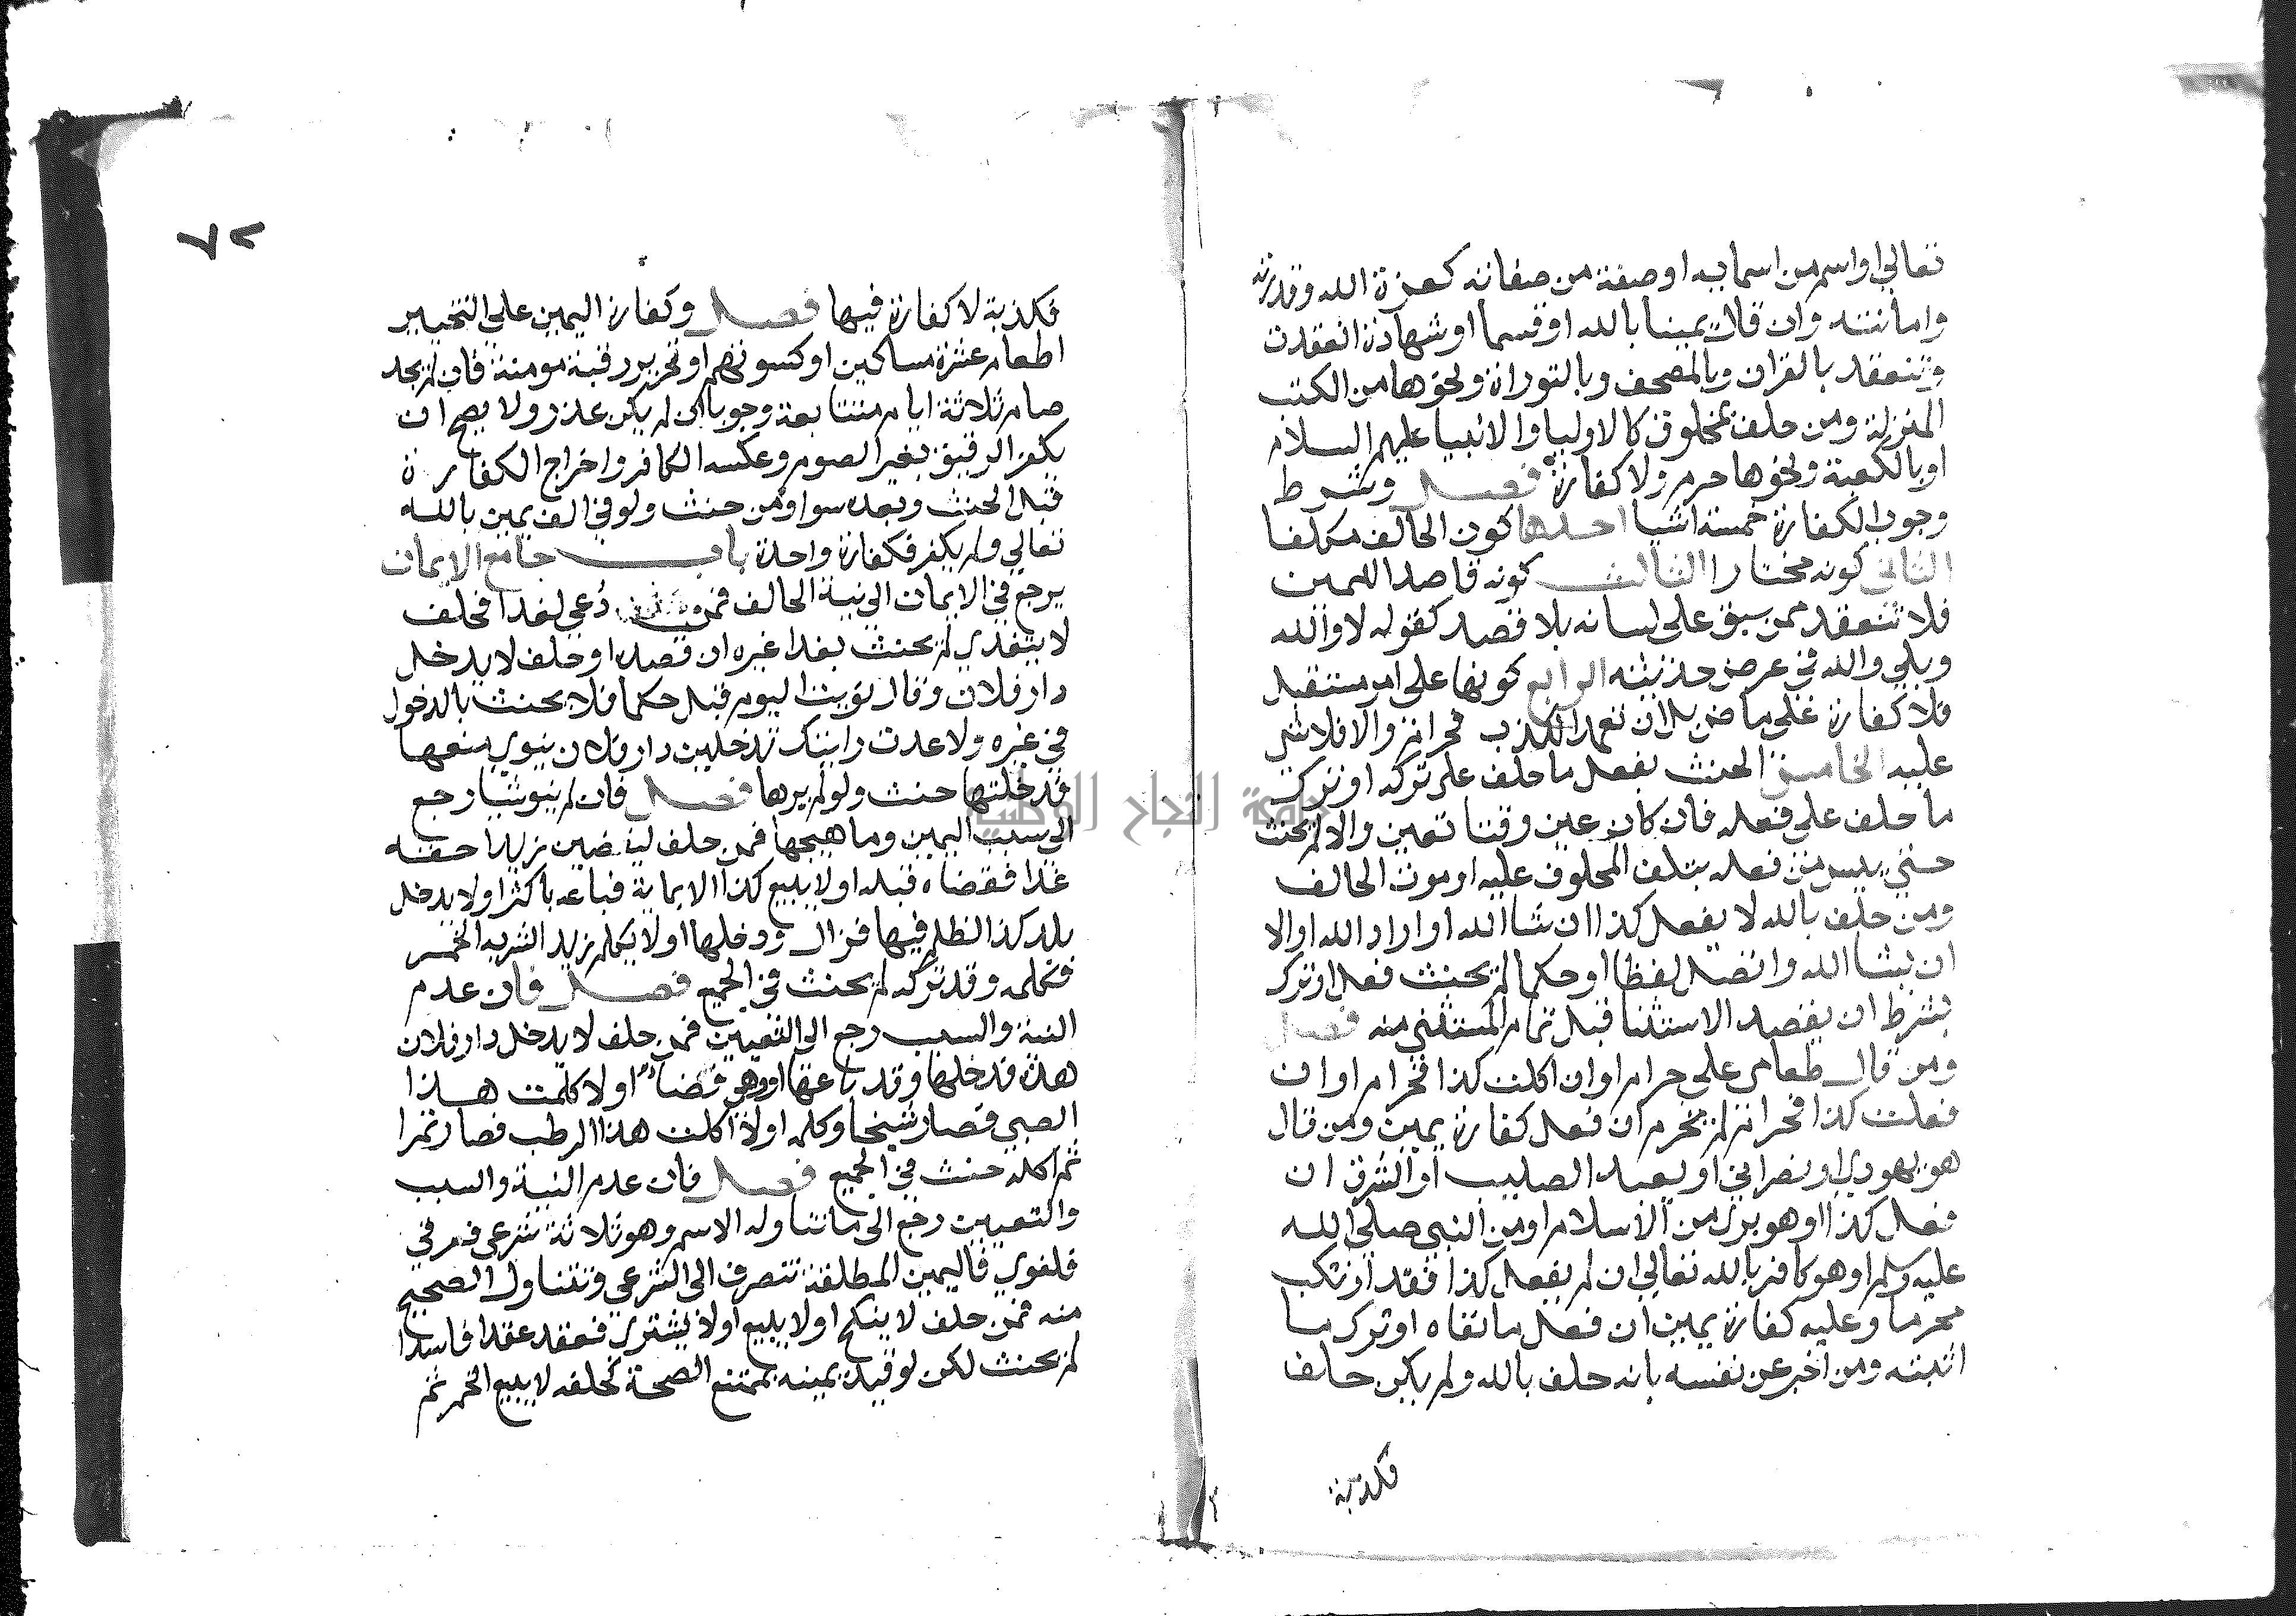 تعالي او اسم من اسمايه او صفة من صفاته كعزة الله وقدرته
وامانته وان قال يمينا بالله او قسما او شهادة انعقدت
وتنعقد بالقران وبالمصحف وبالتوراة ونحوها من الكتب
المنزلة ومن حلف بمخلوق كالاوليا والانبيا عليهم السلام
او بالكعبة ونحوها حرم ولا كفارة فصل وشرط
وجوب الكفارة خمسة اشيا احدها كون الحالف مكلفا
الثاني كونه مختارا الثالث كونه قاصدا لليمين
فلا تنعقد ممن سبق على لسانه بلا قصد كقوله لا والله
وبلي والله في عرض حديثه الرابع كونها على امر مستقبل
فلا كفارة على ماض بل ان تعمد الكذب فحرام والا فلا شي
عليه الخامس الحنث بفعل ما حلف على تركه او ترك
ما حلف على فعله فان كان عين وقتا تعين والا لم يحنث
حتي ييس من فعله بتلف المحلوف عليه او موت الحالف
ومن حلف بالله لا يفعل كذا ان شا الله او اراد الله او الا
ان يشا الله واتصل لفظا او حكما لم يحنث فعل او ترك
بشرط ان يقصد الاستثنا قبل تمام المستثني منه فصل
ومن قال طعامي على حرام او ان اكلت كذا فحرام او ان
فعلت كذا فحرام لم يحرم ان فعل كفارة يمين ومن قال
هو يهودي او نصراني او يعبد الصليب او الشرق ان
فعل كذا او هو بري من الاسلام او من النبي صلى الله
عليه وسلم او هو كافر بالله تعالي ان لم يفعل كذا فقد ارتكب
محرما وعليه كفارة يمين ان فعل ما نفاه او ترك ما
اثبته ومن اخبر عن نفسه بانه حلف بالله ولم يكن حلف
فكذبة
٧٢
فكذبة لا كفارة فيها فصل وكفارة اليمين على التخيير
اطعام عشرة مساكين او كسوتهم او تحرير رقبة مومنة فان لم يجد
صام ثلاثة ايام متتابعة وجوبا ان لم يكن عذر ولا يصح ان
يكفر الرقيق بغير الصوم وعكسه الكافر واخراج الكفارة
قبل الحنث وبعده سوا ومن حنث ولو في الف يمين بالله
تعالي ولم يكفر فكفارة واحدة باب جامع الايمان
يرجع في الايمان الي نية الحالف فمن دعي لغدا فحلف
لا يتغدي لم يحنث بغدا غيره ان قصده او حلف لا يدخل
دار فلان وقال نويت اليوم قبل حكما فلا يحنث بالدخول
في غيره ولا عدت رايتك تدخلين دار فلان ينوي منعها
فدخلتها حنث ولو لم يرها فصل فان لم ينو شيا رجع
الي سبب اليمين وما هيجها فمن حلف ليقضين زيدا حقه
غدا فقضاه قبله او لا يبيع كذا الا بماية فباعه باكثر او لا يدخل
بلد كذا لظلم فيها فزال ودخلها او لا يكلم زيد الشربه الخمر
فكلمه وقد تركه لم يحنث في الجميع فصل فان عدم
النية والسبب رجع الى التعيين فمن حلف لا يدخل دار فلان
هذه فدخلها وقد باعها او وهي فضا او لا كلمت هذا
الصبي فصار شيخا وكلمه او لا اكلت هذا الرطب فصار تمرا
ثم اكله حنث في الجميع فصل فان عدم النية والسبب
والتعيين رجع الى ما تناوله الاسم وهو ثلاثة شرعي فعرفي
فلغوي فاليمين المطلقة تنصرف الى الشرعي وتتناول الصحيح
منه فمن حلف لا ينكح او لا يبيع او لا يشتري فعقد عقدا فاسدا
لم يحنث لكن لو قيد يمينه بممتنع الصحة كحلفه لا يبيع الخمر ثم
جامعة النجاح الوطنية